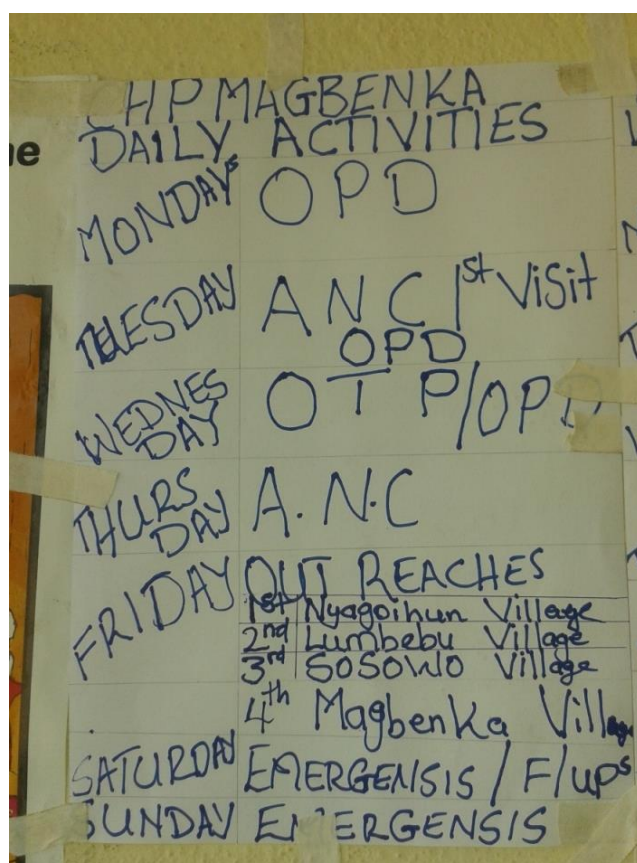 CHP MAGBENKA
DAILY ACTIVITIES
MONDAYS OPD
TEUESDAY ANC 1st Visit
OPD
WEDNES
DAY OTP/OPD
THURS
DAY A.N.C
FRIDAY OUT REACHES
1st Nyagoihun Village
2nd Lumbebu Village
3rd SOSOWO Village
4th Magbenka Village
SATURDAY EMERGENSIS / F/ups
SUNDAY EMERGENSIS